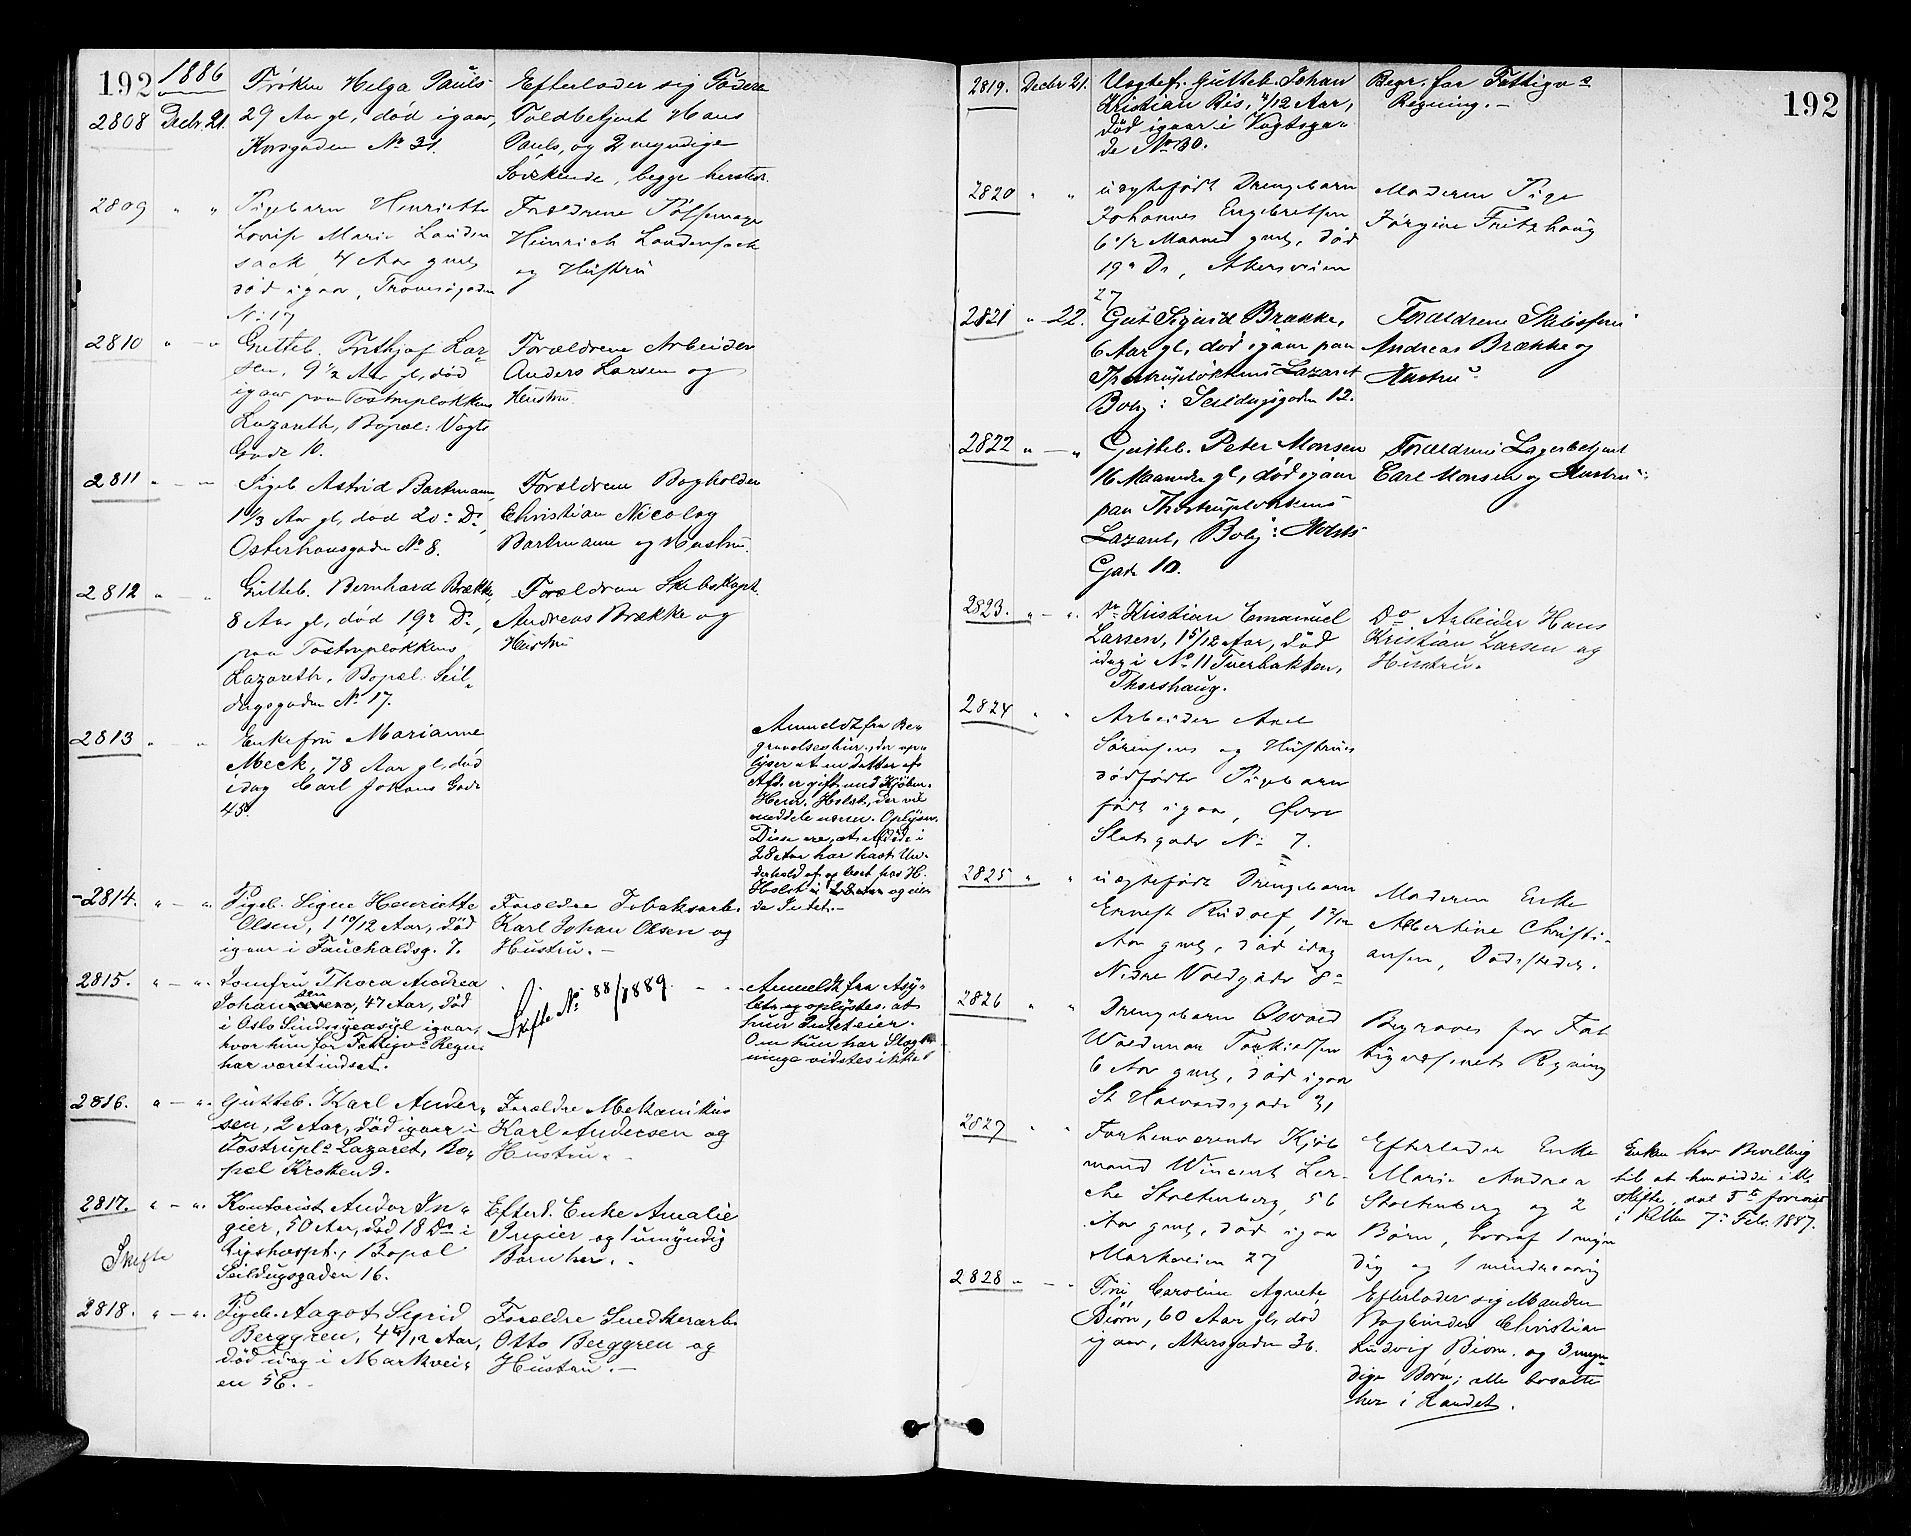 192
1886
2808 Decbr. 21.
Frøken Helga Pauls
29 Aar gl, død igaar,
Korsgaden No 31.
Efterlader sig Fader
Toldbetjent Hans
Pauls, og 2 myndige
Søskende, begge herstds.
2809 " "
Pigebarn Henriette
Lovise Marie Lauden
sack, 4 Aar gml
død igaar,
No 17
Forældrene
Heinrich Laudensack
og Hustru
2810 " - "
Gutteb. Frithjof Lar-
sen, 9 1/2 Aar gl, død
igaar paa Tostrupløkkens
Lazareth, Bopæl: Vogts
Gade 10.
Forældrene Arbeider
Anders Larsen og
Hustru
2811 " - "
Pigeb Astrid Bartmann,
1 1/3 Aar gl, død 20de Ds,
Osterhausgade No 8.
Forældrene Bogholder
Christian Nicolay
Bartmann og Hustru.
2812 " - "
Gutteb. Bernhard Brække,
8 Aar gl, død 19de Ds,
paa Tostrupløkkens
Lazareth. Bopæl: Seil-
dugsgaden No 17.
Forældrene Skibskapt.
Andreas Brække og
Hustru
2813 " - "
Enkefru Marianne
Meck, 78 Aar gl, død
idag Carl Johans Gade
45.
Anmeldt fra Be-
gravelsesbur., der op-
lyser at en Datter af
Afd. er gift med Kjøbm.
Henr. Holst, der vil
meddele nærm. Oplysn.
Disse ere, at afdøde i
28 Aar har havt Un-
derhold af og boet hos H.
Holst i 28 Aar og eier-
de Intet.-
-2814. " - "
Pigeb. Signe Henriette
Olsen, 1 10/12 Aar, død
igaar i Fauchaldsg. 7.
Forældre Tobaksarb.
Karl Johan Olsen og
Hustru.-
2815. " - ".
Jomfru Thora Andrea
Johansen, 47 Aar, død
i Oslo Sindssygeasyl igaar,
hvor hun for Fattigvs Regn.
har været indsat.
Skifte No 88/1889.
Anmeldt fra Asy-
let og oplystes, at
hun Intet eier.
Om hun har Slægt-
ninge vidstes ikke
2816. " - ".
Gutteb. Karl Ander-
sen, 2 Aar, død igaar i
Tostrupls Lazaret, Bo-
pæl Kroken 9.
Forældre Mekanikus
Karl Andersen og
Hustru.-
2817. " - ".
Skifte
Kontorist Andor In-
gier, 50 Aar, død 18 Ds i
Rigshospt., Bopæl
Seildugsgaden 16.
Efterl. Enke Amalie
Ingier og 1 umyndig
Barn her.-
2818. " - ".
Pigeb. Aagot Sigrid
Berggren, Aar,
død idag i Markvei-
en 56.-
Forældre Snedkerarb.
Otto Berggren og
Hustru.-
192
2819. Decbr 21.
Uægtef. Gutteb. Johan
Kristian Ris, 4/12 Aar,
død igaar i Vogtsga-
de No 30.
Begr. for Fattigvs
Regning.-
2820 " "
uægtefødt Drengebarn
Johannes Engebretsen
6 1/2 Maaned gml, død
19de Ds, Akersveien
27
Moderen Pige
Jørgine Fritzhaug
2821 " - 22.
Gut Sigurd Brække,
6 Aar gl, død igaar paa
Thostrupløkkens Lazaret
Bolig: Seildugsgaden 12.
Forældrene
Andreas Brække og
Hustru.
2822 " - "
Gutteb. Peter Monsen
16 Maaneder gl, død igaar
paa Thostrupløkkens
Lazaret, Bolig:
Gade 10.
Forældrene Lagerbetjent
Carl Monsen og Hustru.
2823. " - ".
Do Kristian Emanuel
Larsen, 1 5/12 Aar, død
idag i No 11 Tverbakken,
Thorshaug.
Do Arbeider Hans
Kristian Larsen og
Hustru.
2824 " "
Arbeider Axel
Sørensens og Hustrues
dødfødte Pigebarn
født igaar, Øvre
Slotsgade No 7.
2825 " "
uægtefødt Drengebarn
Ernest Rudolf,
Aar gml, død idag
Nedre Voldgade 8
Moderen Enke
Albertine Christi-
ansen, Dødsstedet.
2826 " "
Drengebarn Osvald
Woldemar Torkildsen
6 Aar gml, død igaar
St Halvardsgade 31
Begraves for Fat
tigvæsenets Regning
2827 " "
Forhenværende Kjøb
mand Wincent Ler-
che Stoltenberg, 56
Aar gml, død igaar
Markveien 27
Efterlader Enke
Marie Andrea
Stoltenberg og 2
Børn, hvoraf 1 myn
dig og 1 mindreaarig
Enken har Bevilling
til at hensidde i U.
Skifte, dat 5te
i Retten 7de Feb. 1887.
2828 " - "
Fru Caroline Agnete
Biørn, 60 Aar gl, død
igaar, Akersgaden 36.
Efterlader sig Manden
Bogbinder Christian
Ludvig Biørn. og 3 myn-
dige Børn; alle bosatte
her i Landet.